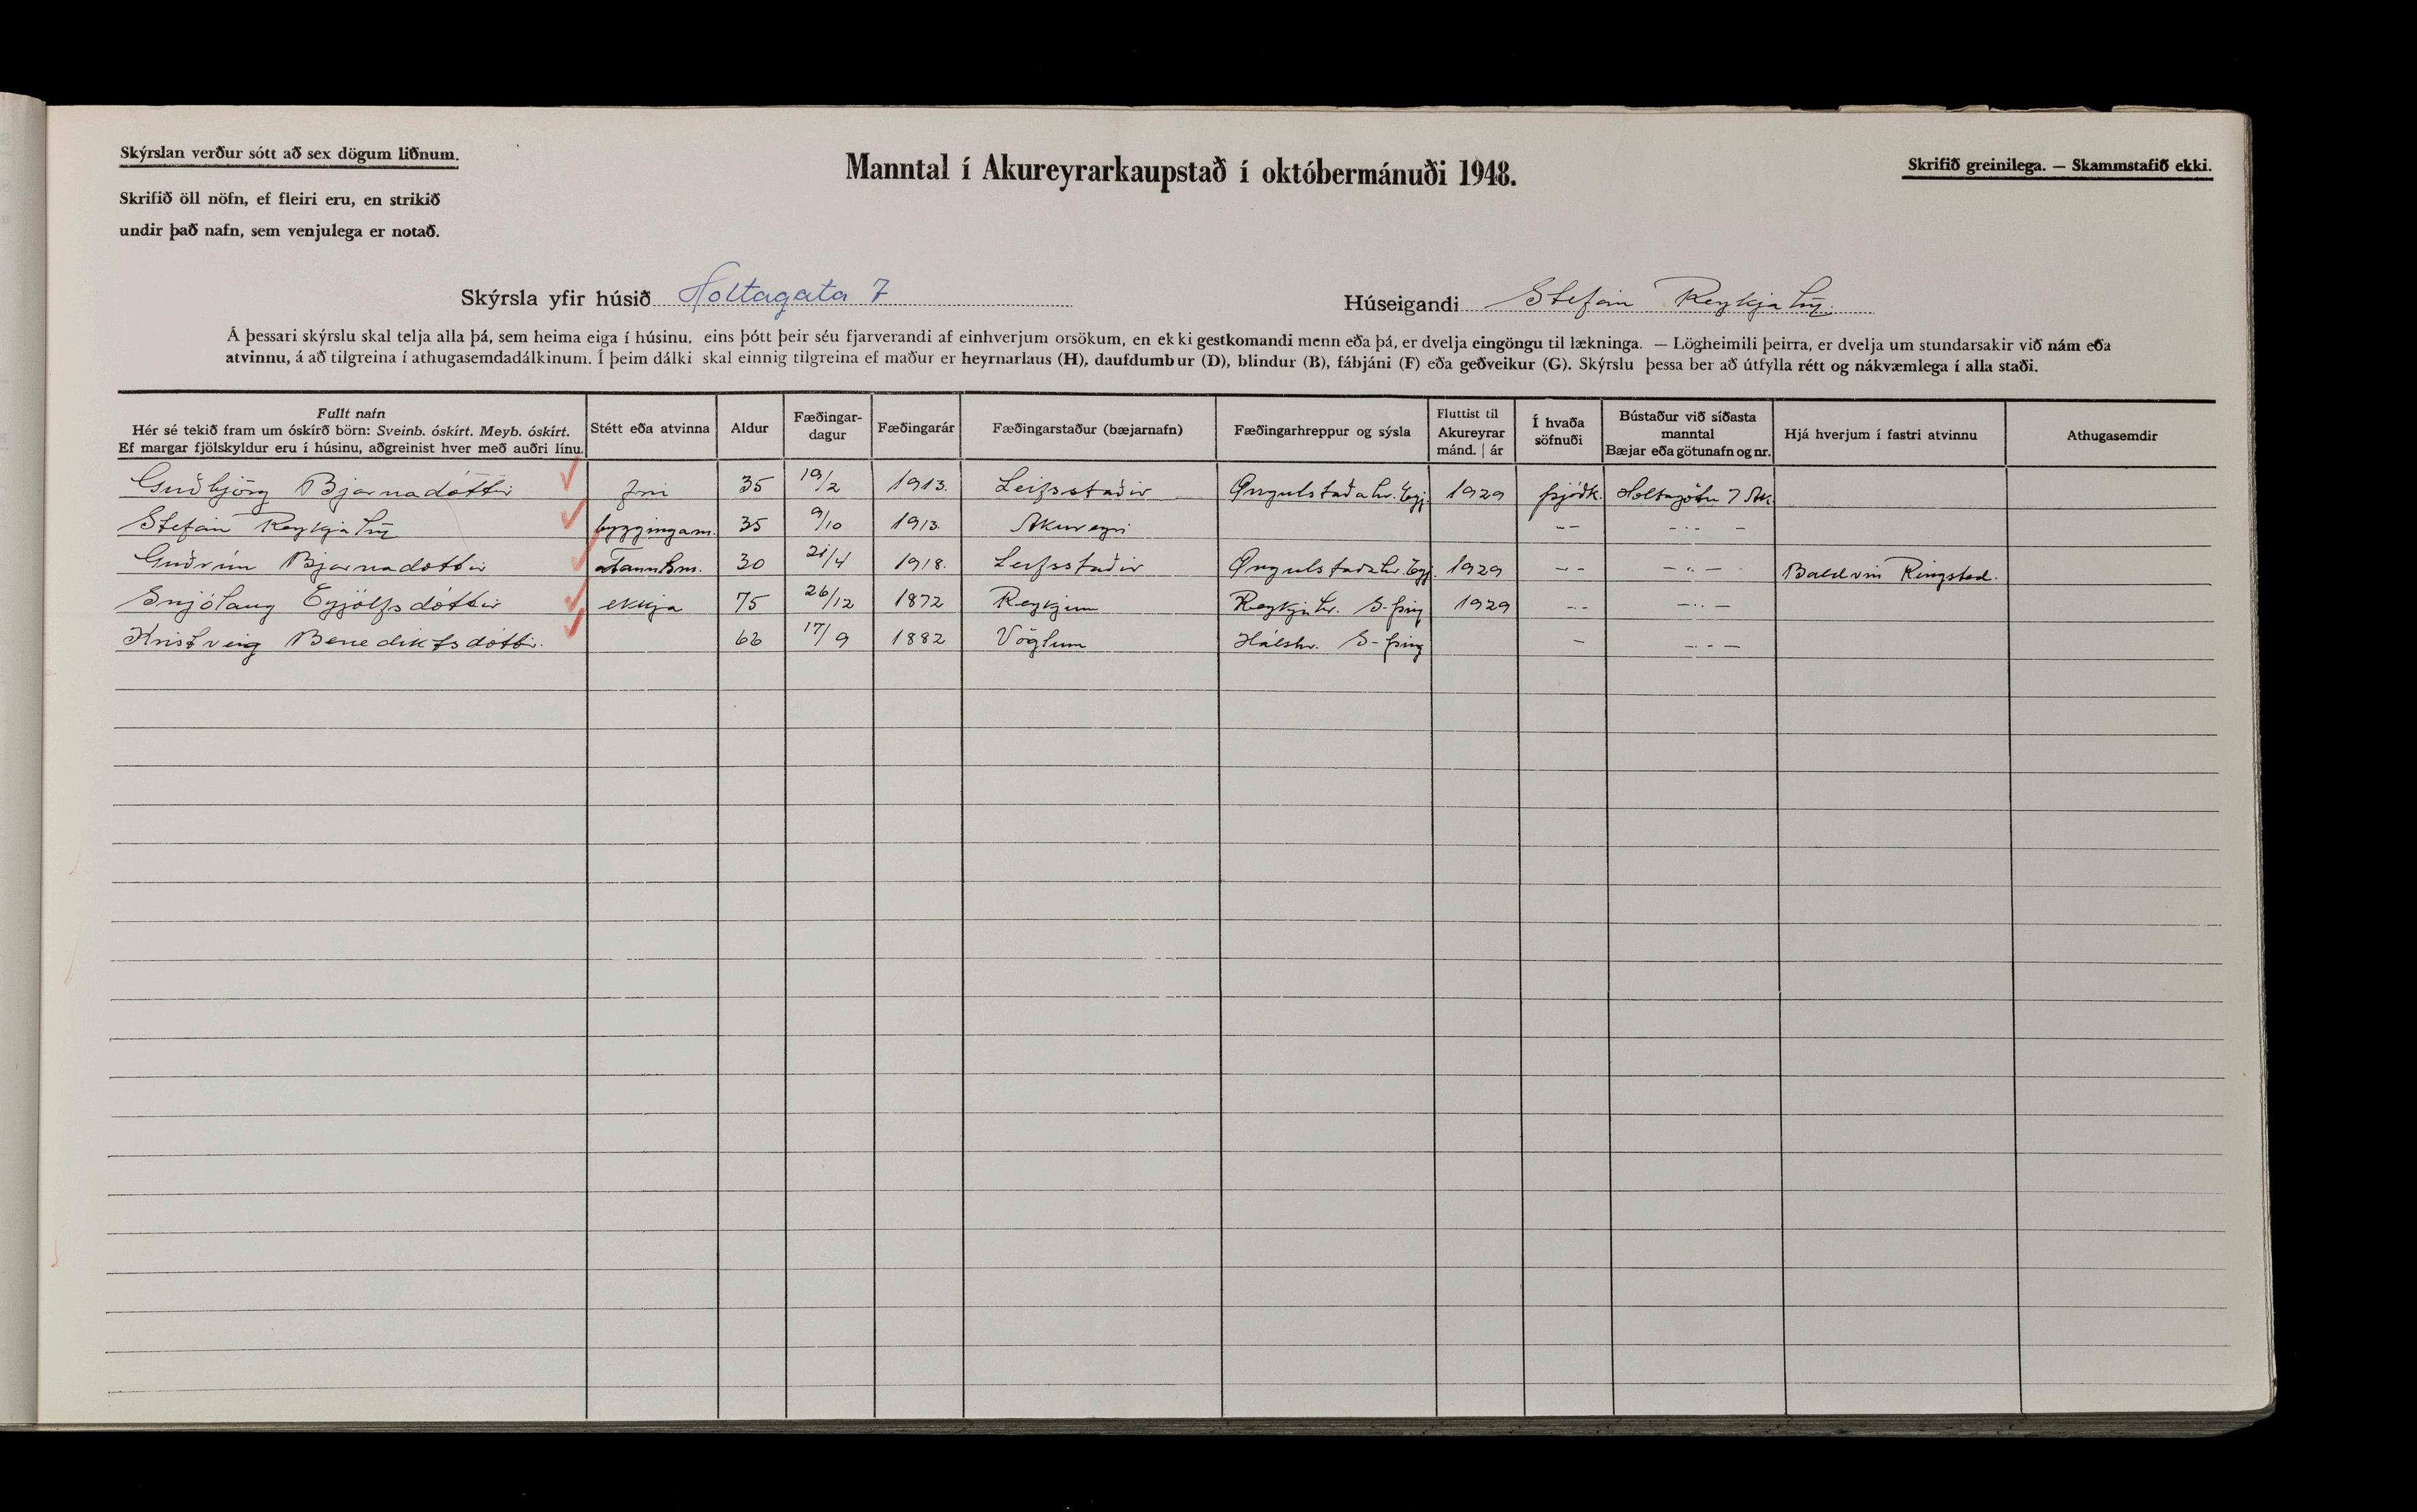 Skýrslan verður sótt að sex dögum liðnum.
Skrifið öll nöfn, ef fleiri eru, en strikið
undir það nafn, sem venjulega er notað.
Manntal í Akureyrarkaupstað í októbermánuði 1948.
Skrifið greinilega. — Skammstafið ekki.
Skýrsla yfir húsið Holtagata 7
Húseigandi Stefán Reykjalín
Á þessari skýrslu skal telja alla þá, sem heima eiga í húsinu, eins þótt þeir séu fjarverandi af einhverjum orsökum, en ekki gestkomandi menn eða þá, er dvelja eingöngu til lækninga. — Lögheimili þeirra, er dvelja um stundarsakir við nám eða
atvinnu, á að tilgreina í athugasemdadálkinum. Í þeim dálki skal einnig tilgreina ef maður er heyrnarlaus (H), daufdumbur (D), blindur (B), fábjáni (F) eða geðveikur (G). Skýrslu þessa ber að útfylla rétt og nákvæmlega í alla staði.
Fullt nafn
Hér sé tekið fram um óskírð börn: Sveinb. óskírt. Meyb. óskírt.
Ef margar fjölskyldur eru í húsinu, aðgreinist hver með auðri línu.
Stétt eða atvinna
Aldur
Fæðingar-
dagur
Fæðingarár
Fæðingarstaður (bæjarnafn)
Fæðingarhreppur og sýsla
Fluttist til
Akureyrar
mánd. | ár
Í hvaða
söfnuði
Bústaður við síðasta
manntal
Bæjar eða götunafn og nr.
Hjá hverjum í fastri atvinnu
Athugasemdir
Guðbjörg Bjarnadóttir frú 35 19/2 1913. Leifsstaðir Öngulstaðahr. Eyj. 1929 þjóðk. Holtagötu 7 Ak.
Stefán Reykjalín byggingam. 35 9/10 1913. Akureyri -- -·- -
Guðrún Bjarnadóttir 30 21/4 1918. Leifsstaðir Öngulstaðahr. Eyj. 1929 -- -·- - Baldvin Ringsted.
Snjólaug Eyjólfsdóttir ekkja 75 26/12 1872 Reykjum Reykjahr. S-þing 1929 -- -··-
Kristveig Benediktsdóttir. 66 17/9 1882 Vöglum Hálshr. S-þing - -·-